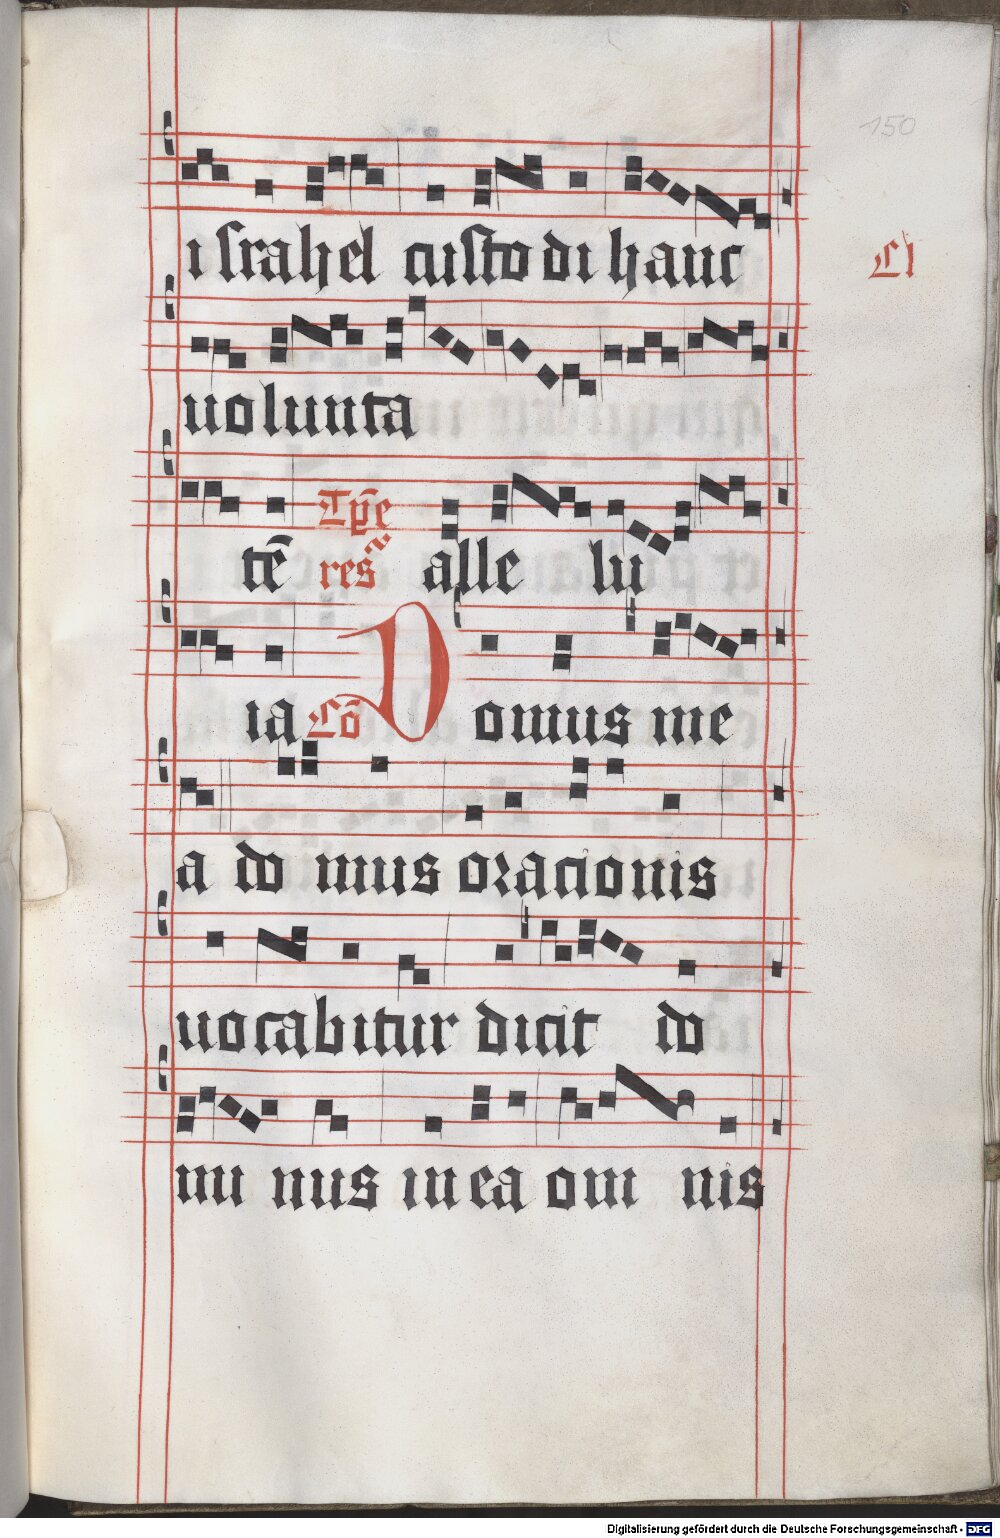 150
i srahel custo di hanc
Cl
uolunta
tē Tp̄e res alle lu
ia Cō Domus me
a do mus oracionis
uocabitur dicit do
mi nus in ea om nis
Digitalisierung gefördert durch die Deutsche Forschungsgemeinschaft - DFG